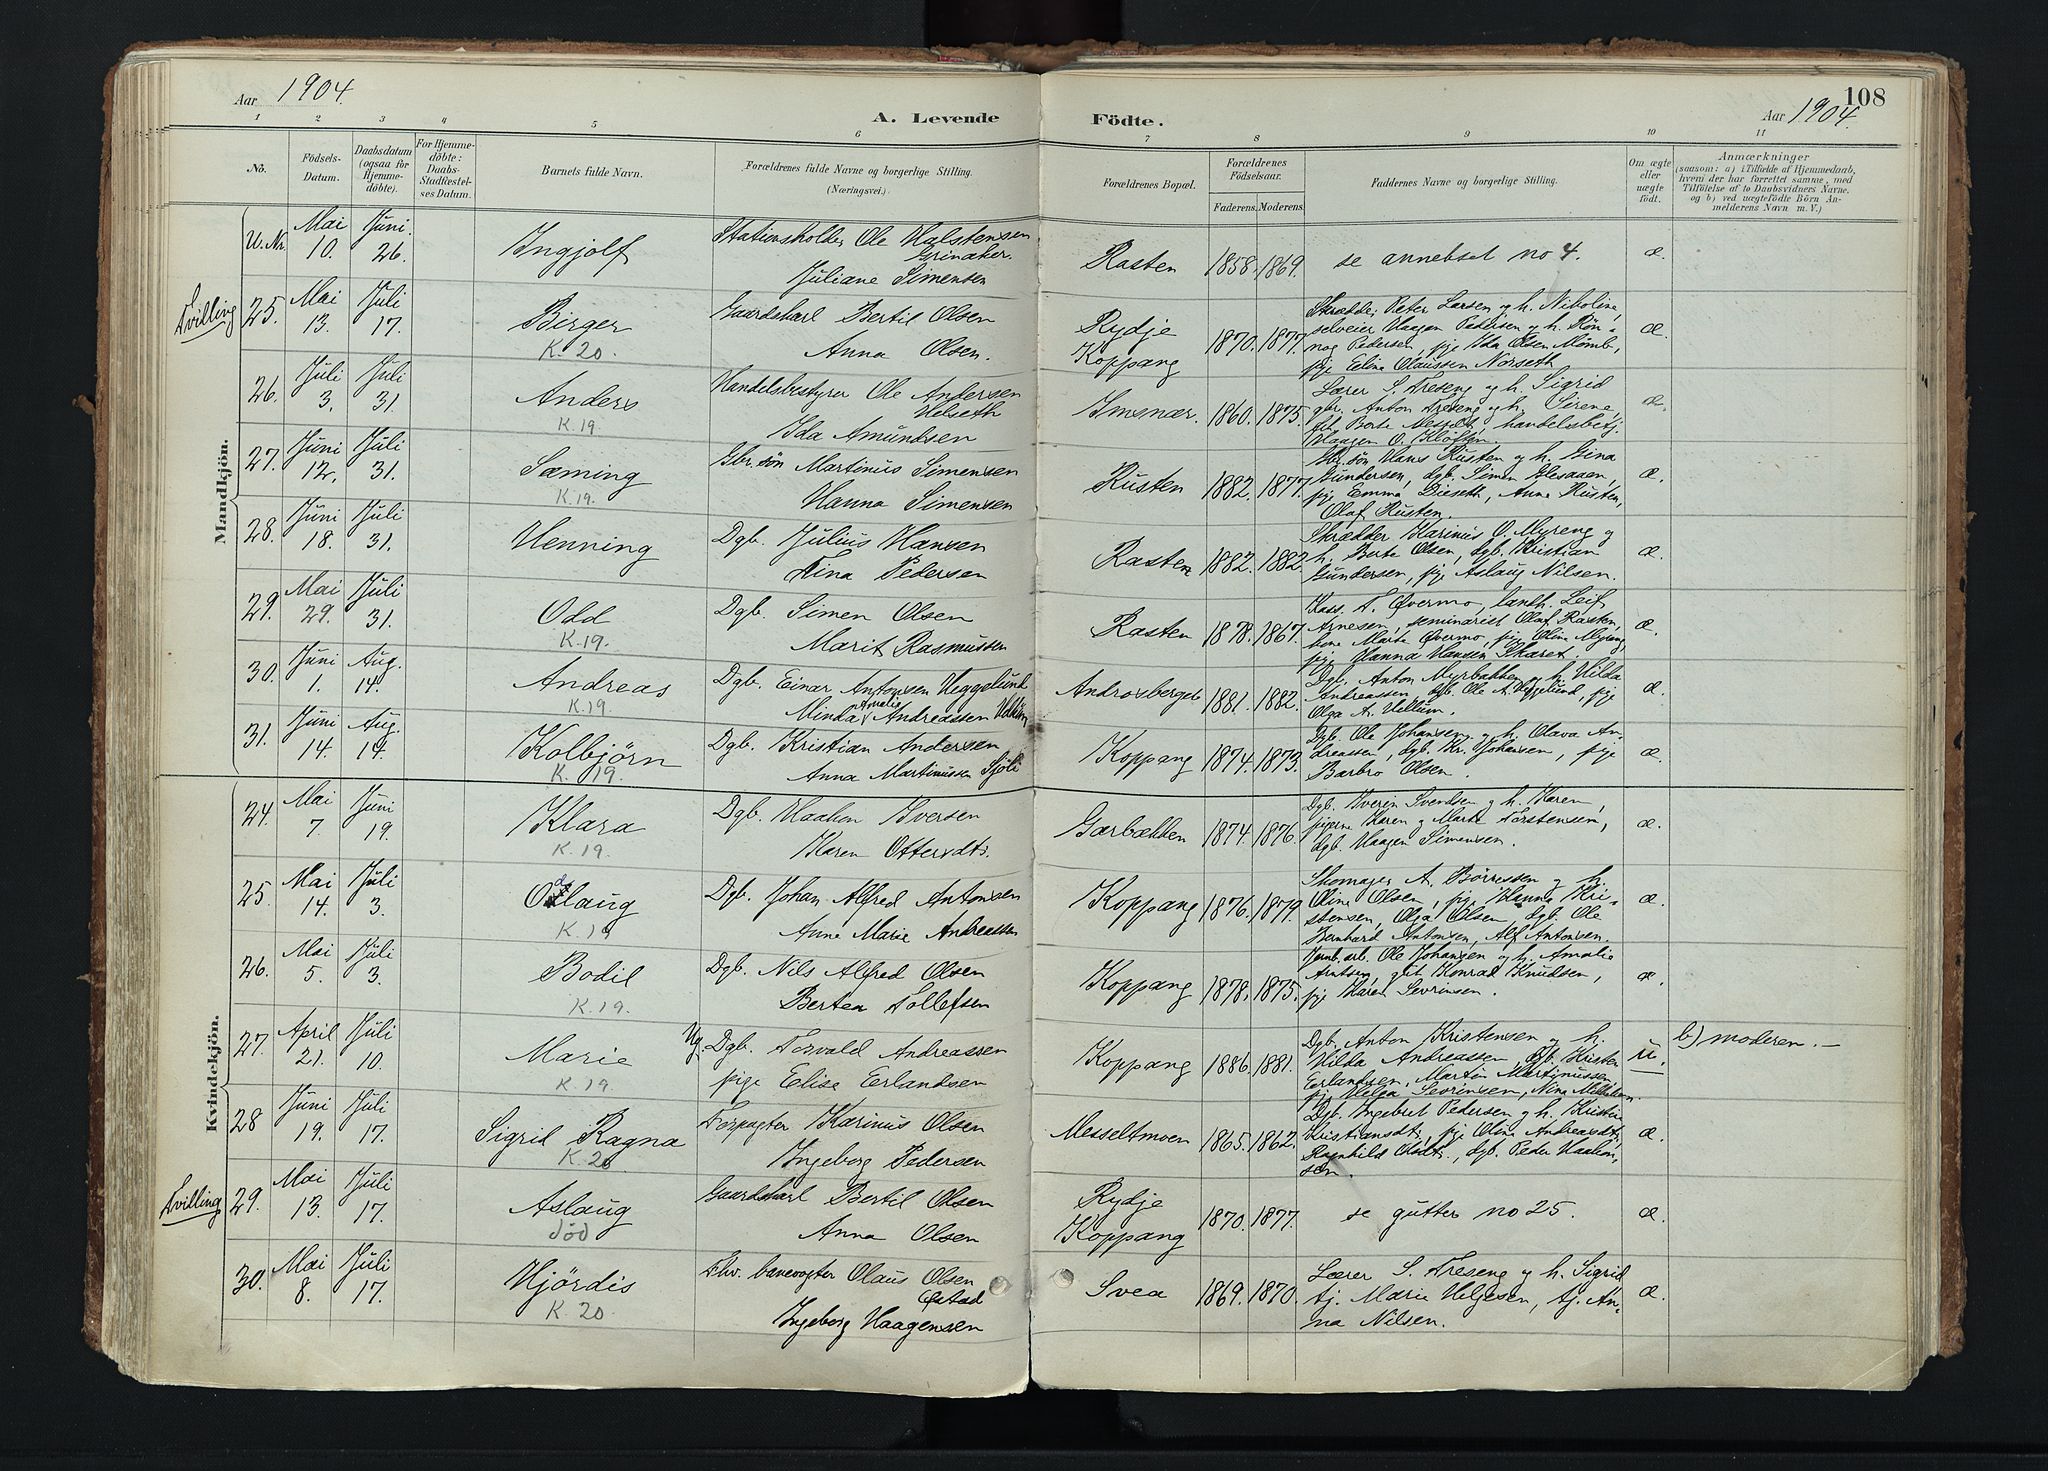 Aar 1904.
A. Levende
Födte.
Aar 1904.
108
1 2 3 4 5 6 7 8 9 10 11
No.
Födsels-Datum.
Daabsdatum (ogsaa for Hjemme-döbte).
For Hjemme-döbte: Daabs-Stadfæstel-ses Datum.
Barnets fulde Navn.
Forældrenes fulde Navne og borgerlige Stilling. (Næringsvei.)
Forældrenes Bopæl.
Forældrenes Födselsaar.
Faderens. Moderens.
Faddernes Navne og borgerlige Stilling.
Om ægte eller uægte födt.
Anmærkninger
(saasom: a) i Tilfælde af Hjemmedaab, hvem der har forrettet samme, med Tilföielse af to Daabsvidners Navne, og b) ved uægtefödte Börn Anmelderens Navn m. V.)
Mandkjön.
U. Nr. Mai 10. Juni 26. Ingjolf
Stationsholder Ole Halstensen
Grinaker.
Juliane Simensen
Rasten 1858. 1869. se annetset no 4. æ.
Tvilling
25. Mai 13. Juli 17. Birger
K. 20.
Gaardskarl Bertil Olsen
Anna Olsen.
Rydje
Koppang 1870. 1877.
Skrædder Peter Larsen og h. Nikoline,
selveier Haagen Pedersen og h. Rön-
nog Pedersen, pige Ida Olsen Momb,
pige Eline Olaussen Norseth æ.
26. Juli 3. Juli 31. Anders
K. 19.
Handelsbestyrer Ole Andersen
Ida Amundsen
Imsnær. 1860. 1875.
Lærer S. Treseng og h. Sigrid
gbr. Anton Treseng og h. Sirene,
handelsbetj.
Haagen O. Kloften. æ.
27. Juni 12. Juli 31. Sæming
K. 19.
Gbr. sön Martinus Simensen
Hanna Simensen
Rusten 1882. 1877.
Gbr. sön Hans Rusten og h. Gina
Gundersen, dgb. Simen
pige Emma Bieseth, Anne Rusten,
Olaf Rusten. æ.
28. Juni 18. Juli 31. Henning
Dgb. Julius Hansen
Tina Pedersen
Rasten 1882. 1882.
Skrædder Karinus O. Myreng og
h. Berte Olsen, dgb. Kristian
Gundersen, pige Aslaug Nilsen. æ.
29. Mai 29. Juli 31. Odd
K. 19.
Dgb. Simen Olsen
Marit Rasmussen
Rasten 1878. 1867.
Kass. T. Øvermo, landh. Leif
Arnesen, seminarist Olaf Rasten,
kone Marte Øvermo, pige Oline Myreng,
pige Hanna Hansen Skaret. æ.
30. Juni 1. Aug. 14. Andreas
K. 19.
Dgb. Einar Antonsen Heggelund
Minda Amalie Andreassen
Androsberget 1881. 1882.
Dgb. Anton Myrbakken og h. Hilda
Andreassen, dgb. Ole A. Heggelund, pige
Olga A. Hellum. æ.
31. Juni 14. Aug. 14. Kolbjörn
K. 19.
Dgb. Kristian Andersen
Anna Martinussen Sjöli
Koppang 1874. 1873.
Dgb. Ole Johansen og h. Olava An-
dreassen, dgb. Kr. Johansen, pige
Barbro Olsen. æ.
Kvindekjön.
24. Mai 7. Juni 19. Klara
K. 19.
Dgb. Haakon Iversen
Karen Ottersdtr.
Garbækken 1874. 1876.
Dgb. Iverin Svendsen og h. Karen,
pigerne Karen og Marte Torstensen,
dgb. Haagen Simensen. æ.
25. Mai 14. Juli 3. Odlaug
K. 19
Dgb. Johan Alfred Antonsen
Anne Marie Andreassen
Koppang 1876. 1879.
Skomager A. Börresen og h.
Oline Olsen, pige Hanna Kri-
stensen, Olga Olsen, dgb. Ole
Bernhard Antonsen, Alf Antonsen. æ.
26. Mai 5. Juli 3. Bodil
K. 19.
Dgb. Nils Alfred Olsen
Bertea Tollefsen
Koppang 1878. 1875.
Jernb. arb. Ole Johansen og h. Amalie
Arntsen, gut Konrad Knudsen,
pige Karen Sevrinsen. æ.
27. April 21. Juli 10. Marie
K. 19.
Ug. Dgb. Torvald Andreassen
pige Elise Erlandsen
Koppang 1886. 1881.
Dgb. Anton Kristensen og h.
Hilda Andreassen, dgb. Kristen
Erlandsen, Martin Martinussen
pige Helga Sevrinsen, Nina
u. b) moderen. —
28 Juni 19. Juli 17. Sigrid Ragna
K. 20
Forpagter Karinus Olsen
Ingeborg Pedersen
Messeltmoen 1865. 1862.
Dgb. Ingebret Pedersen og h. Kristine
Kristiansdtr, pige Oline Andreasdtr,
Ragnhild Olsdtr., dgb. Peder Haakon-
sen. æ.
Tvilling
29. Mai 13. Juli 17. Aslaug
död
Gaardskarl Bertil Olsen
Anna Olsen
Rydje
Koppang 1870. 1877. se gutter no 25. æ.
30. Mai 8. Juli 17. Hjördis
K. 20
Fhv. banevogter Olaus Olsen
Øistad
Ingeborg Haagensen
Svea 1869. 1870.
Lærer S. Treseng og h. Sigrid
tj. Marie Helgesen, tj. An-
na Nilsen. æ.